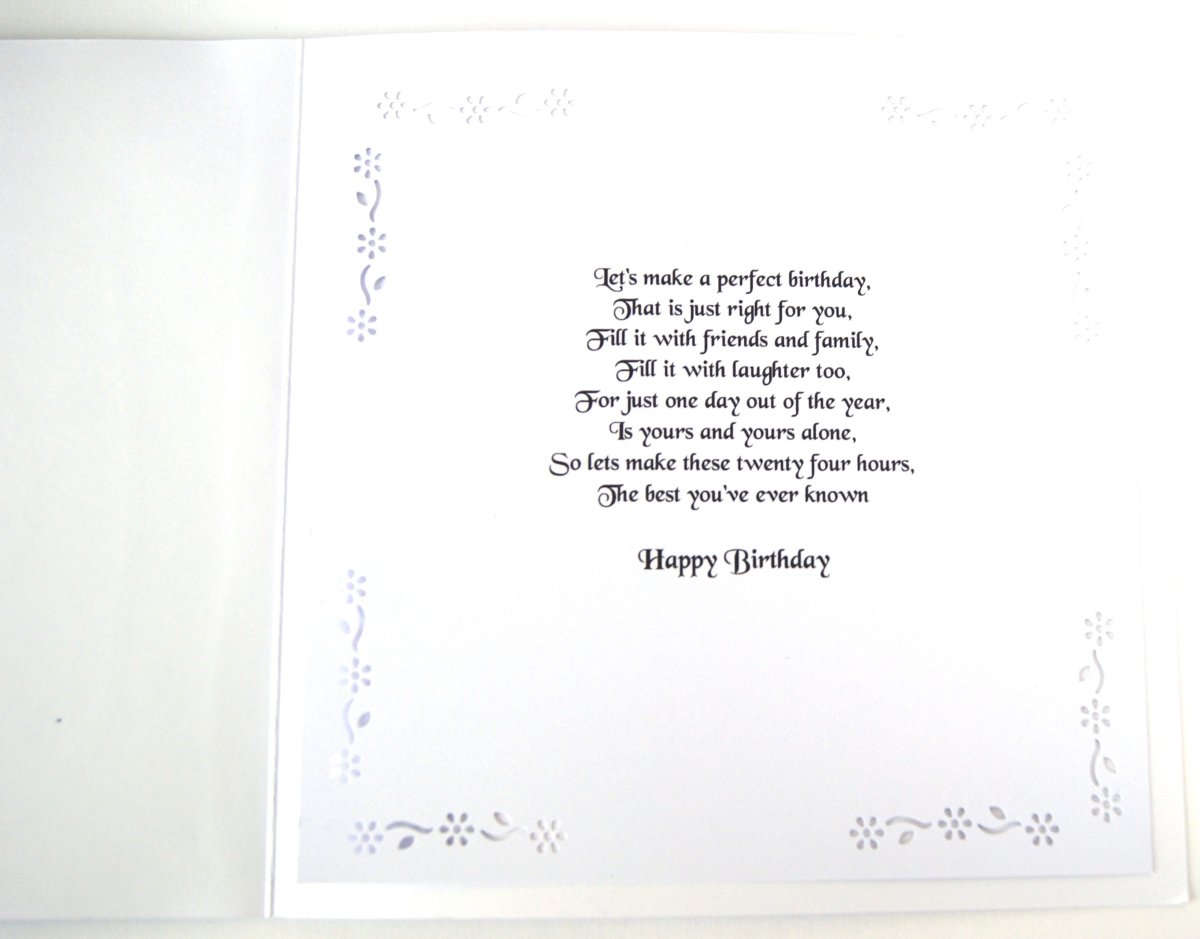 Let's make a perfect birthday,
That is just right for you,
Fill it with friends and family,
Fill it with laughter too,
For just one day out of the year,
Is yours and yours alone,
So lets make these twenty four hours,
The best you've ever known
Happy Birthday